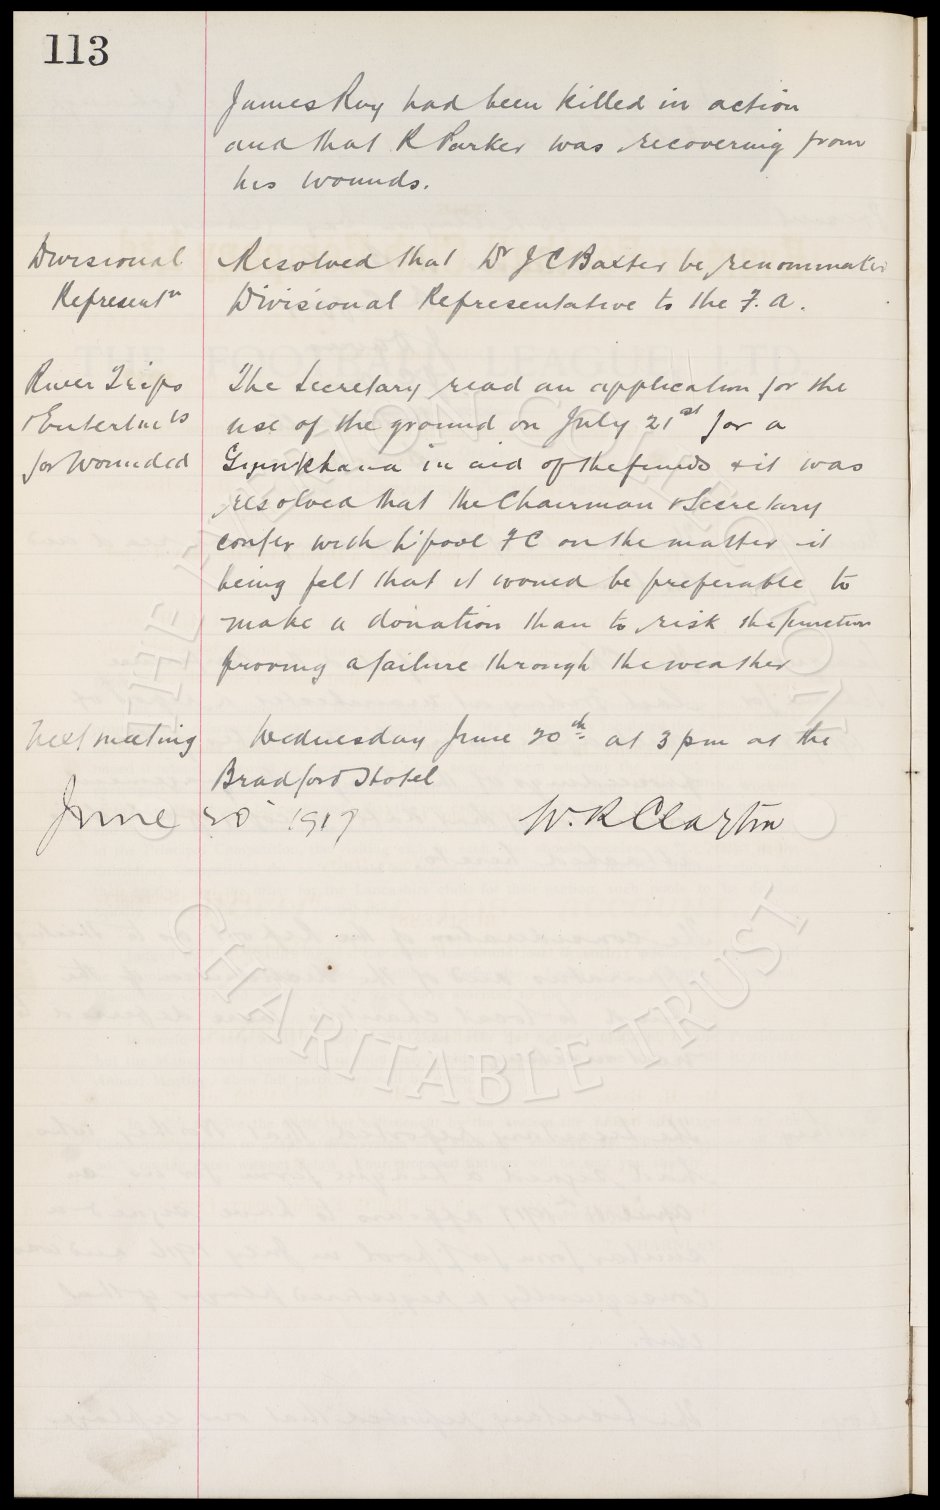 113
James Roy had been killed in action
and that R Parker was recovering from
his wounds.
Divisional
Representn
Resolved that Dr J C Baxter be renominated
Divisional Representative to the F.A.
River Trips
& Entertmts
for Wounded
The Secretary read an application for the
use of the ground on July 21st for a
Gymkhana in aid of the funds & it was
resolved that the Chairman & Secretary
confer with L'pool FC on the matter - it
being felt that it would be preferable to
make a donation than to risk the function
proving a failure through the weather
Next meeting
Wednesday June 20th at 3 pm at the
Bradford Hotel
June 20 1917
W. R Clayton
THE EVERTON COLLECTION
CHARITABLE TRUST